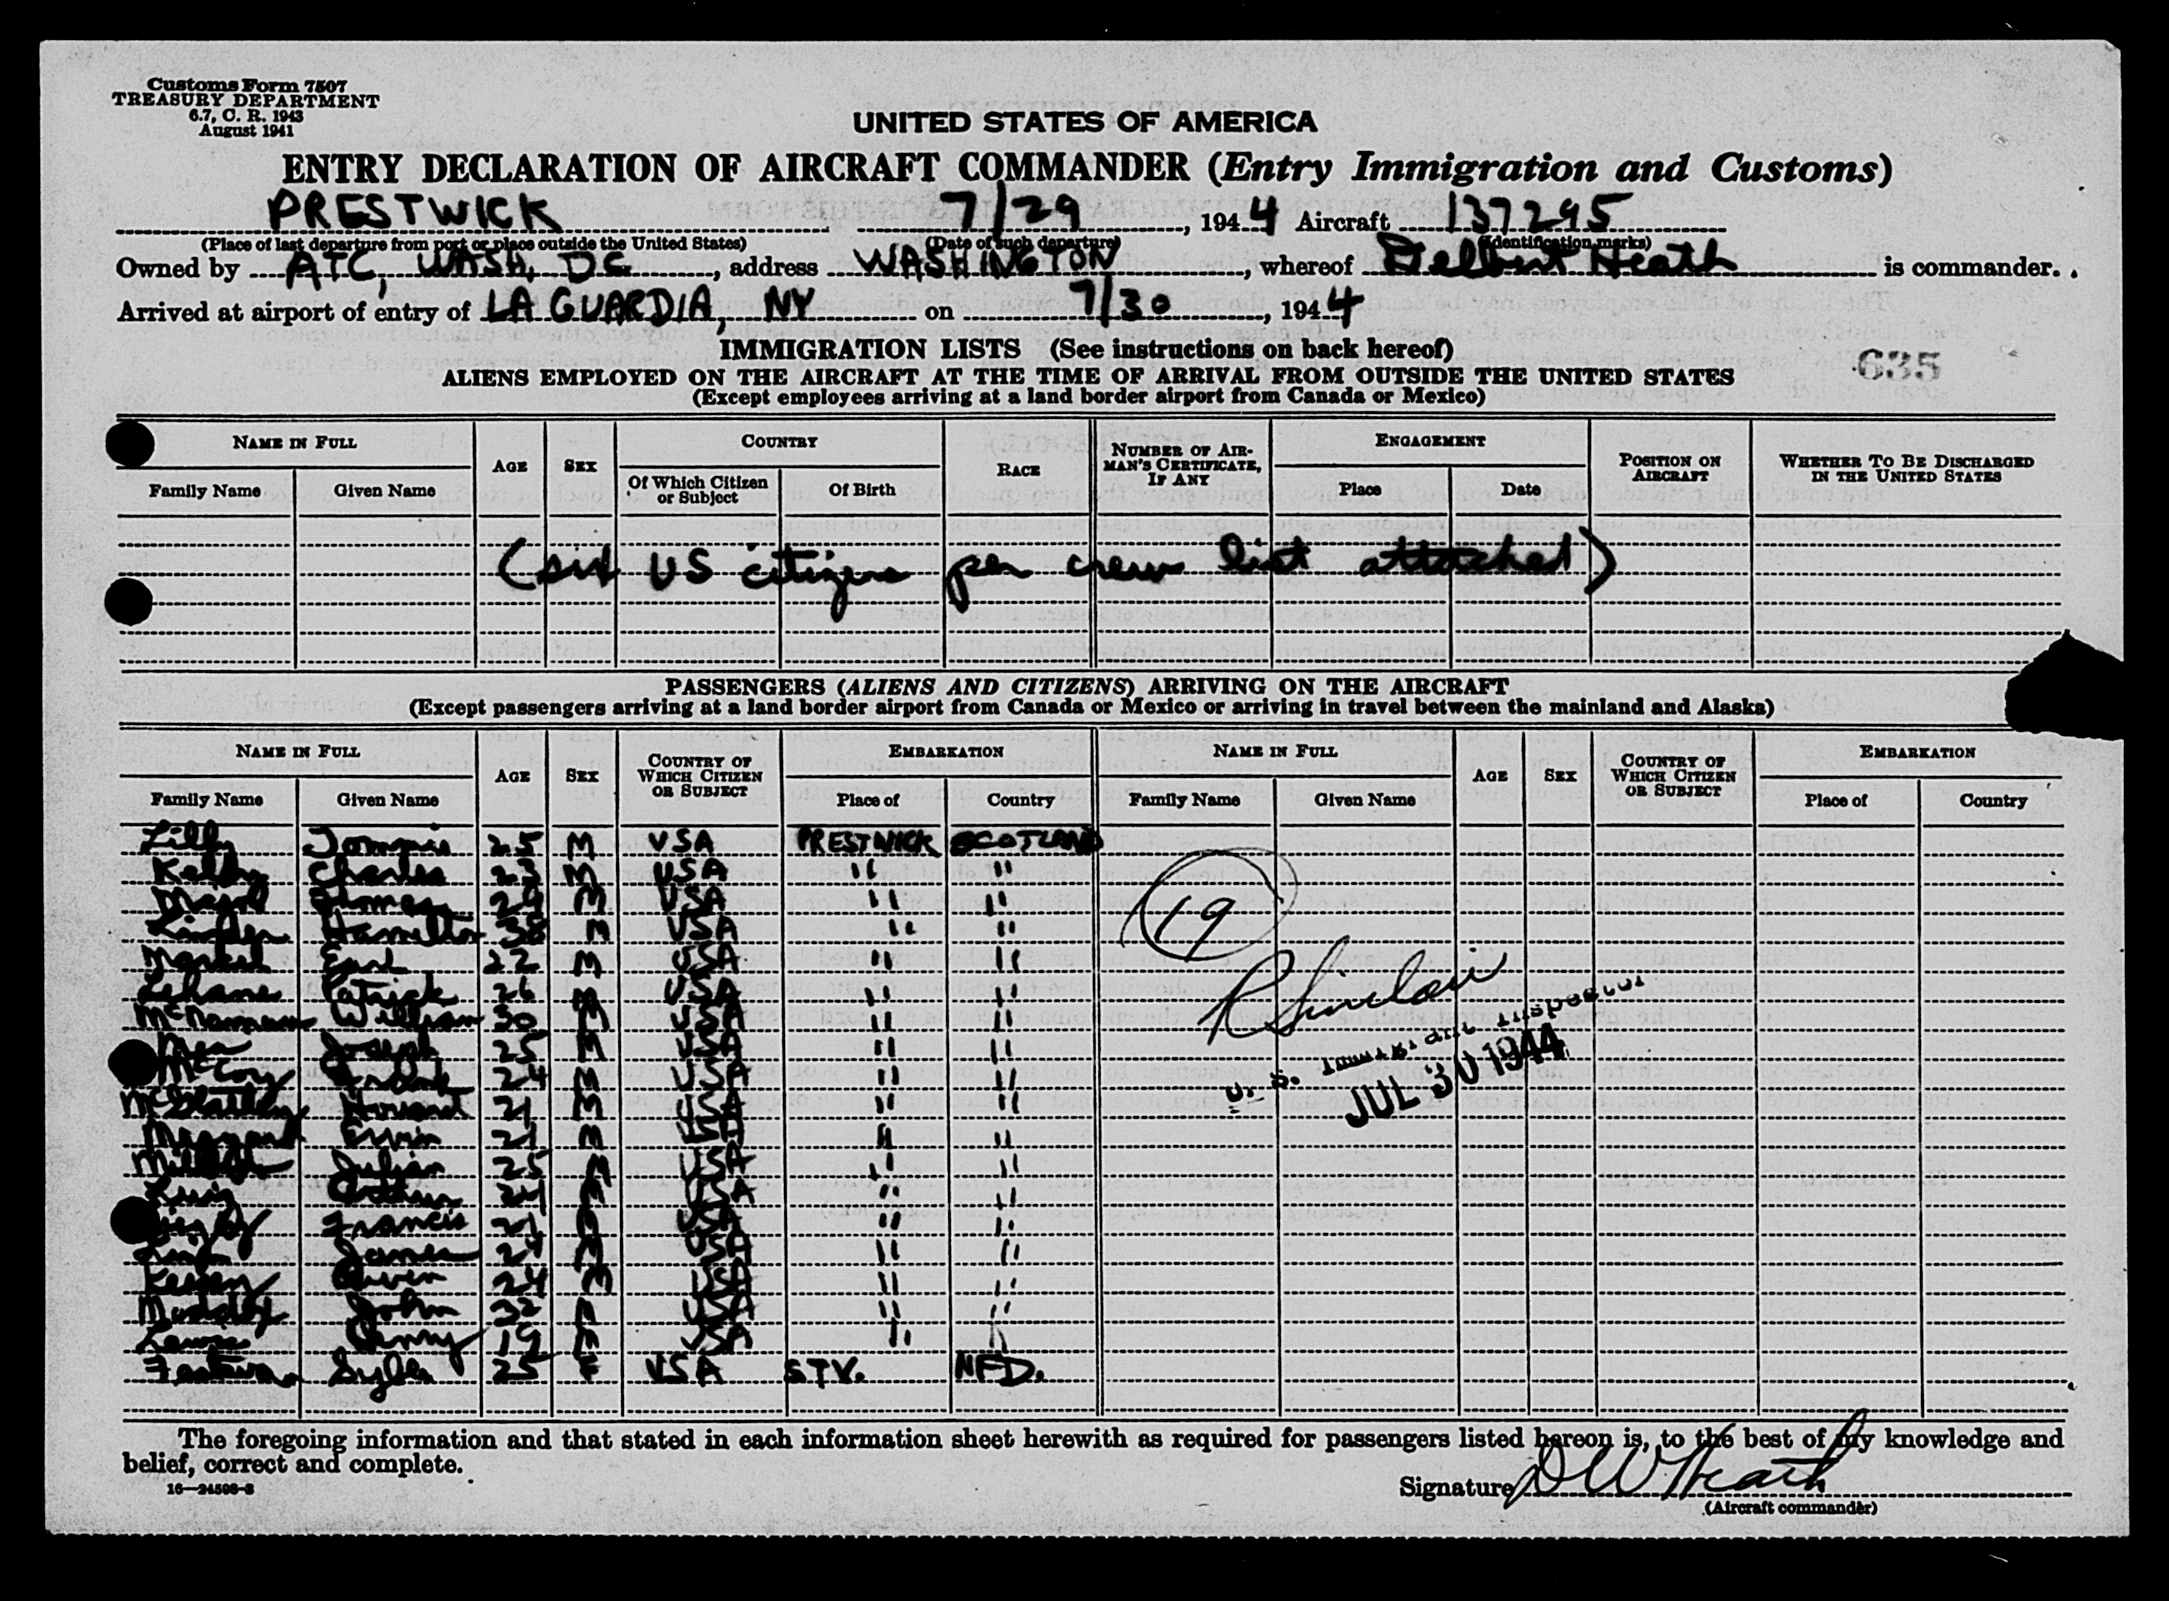 Customs Form 7507
TREASURY DEPARTMENT
6.7, C. R. 1943
August 1941
UNITED STATES OF AMERICA
ENTRY DECLARATION OF AIRCRAFT COMMANDER (Entry Immigration and Customs)
PRESTWICK 7/29, 1944 Aircraft 137295
(Place of last departure from port or place outside the United States) (Date of such departure) (Identification marks)
Owned by ATC, WASH, DC, address WASHINGTON, whereof Delbert Heath is commander.
Arrived at airport of entry of LA GUARDIA, NY on 7/30, 1944
IMMIGRATION LISTS (See instructions on back hereof)
635
ALIENS EMPLOYED ON THE AIRCRAFT AT THE TIME OF ARRIVAL FROM OUTSIDE THE UNITED STATES
(Except employees arriving at a land border airport from Canada or Mexico)
NAME IN FULL AGE SEX COUNTRY RACE NUMBER OF AIRMAN'S CERTIFICATE, IF ANY ENGAGEMENT POSITION ON AIRCRAFT WHETHER TO BE DISCHARGED IN THE UNITED STATES
Family Name Given Name Of Which Citizen or Subject Of Birth Place Date
(six US citizens per crew list attached)
PASSENGERS (ALIENS AND CITIZENS) ARRIVING ON THE AIRCRAFT
(Except passengers arriving at a land border airport from Canada or Mexico or arriving in travel between the mainland and Alaska)
NAME IN FULL AGE SEX COUNTRY OF WHICH CITIZEN OR SUBJECT EMBARKATION NAME IN FULL AGE SEX COUNTRY OF WHICH CITIZEN OR SUBJECT EMBARKATION
Family Name Given Name Place of Country Family Name Given Name Place of Country
Lilly Tommie 25 M USA PRESTWICK SCOTLAND
Kelly Charles 23 M USA " "
Thomas 29 M USA " "
Hamilton 38 M USA " "
Earl 22 M USA " "
Lehane Patrick 26 M USA " "
McNamara William 30 M USA " "
Joseph 25 M USA " "
McCoy 24 M USA " "
Howard 21 M USA " "
Maynard Ervin 21 M USA " "
Julian 25 M USA " "
Arthur 24 M USA " "
Francis 21 M USA " "
James 24 M USA " "
Owen 24 M USA " "
John 32 M USA " "
Lewis 19 M USA " "
25 F USA STV. NFD.
19
R Sinclair
U. S. Immigrant Inspector
JUL 30 1944
The foregoing information and that stated in each information sheet herewith as required for passengers listed hereon is, to the best of my knowledge and
belief, correct and complete.
16—24508-3
Signature D W Heath
(Aircraft commander)